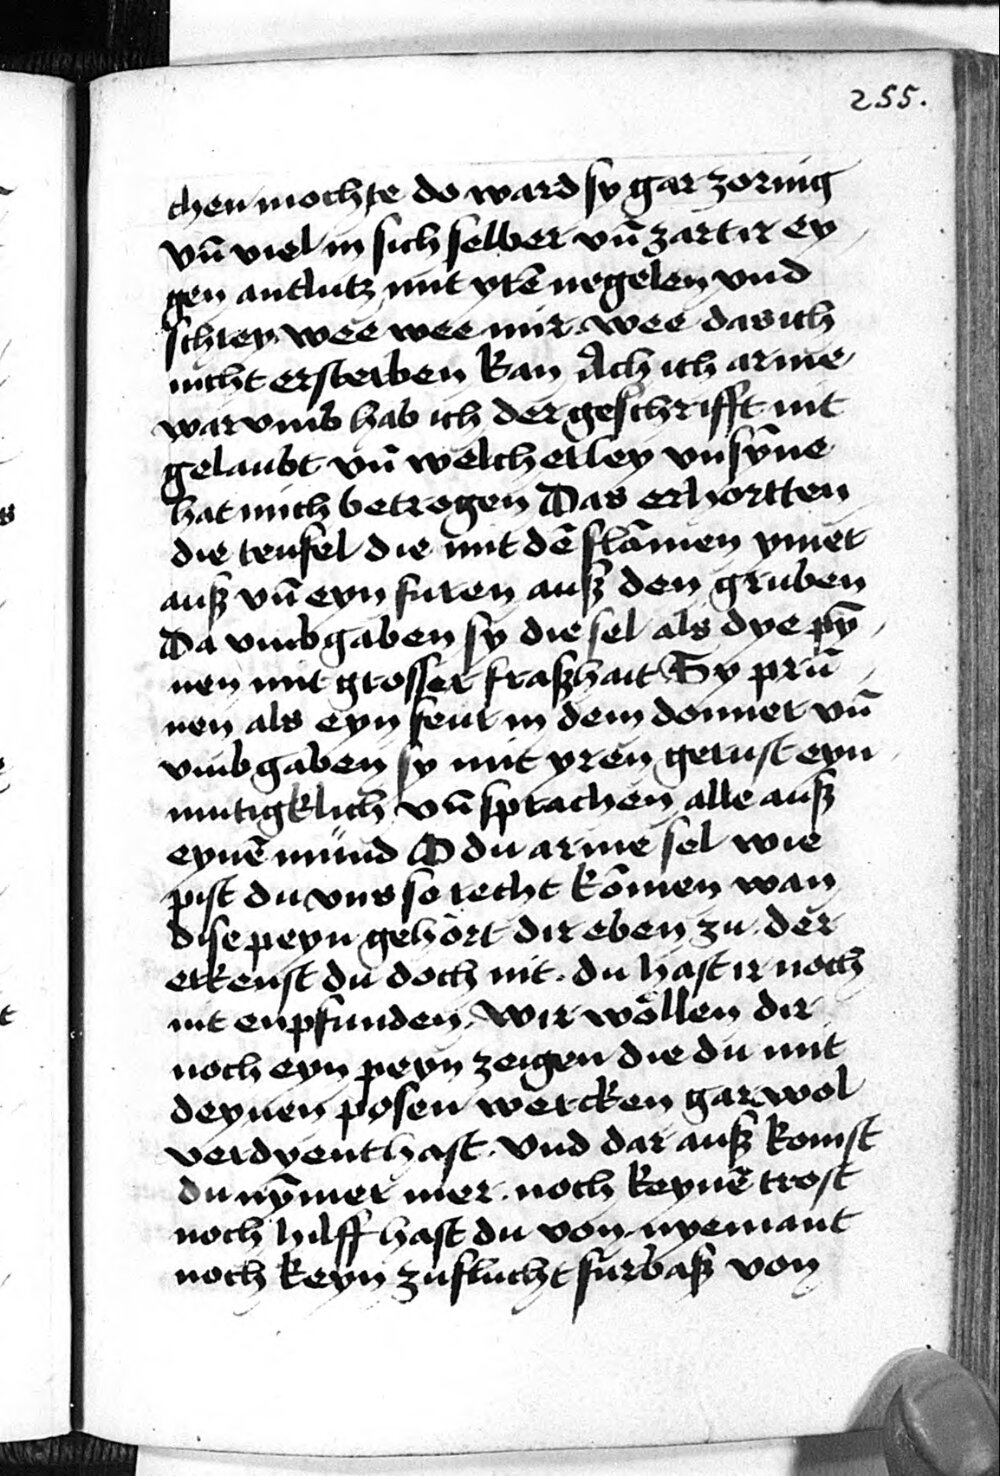 255.
chen mochte do ward sy gar zornig
vn̄ viel in sich selber vn̄ zart ir ey
gen antlutz mit yrē negelen vnd
schrey wee wee mir wee das ich
nicht ersterben kan Ach ich arme
warvmb hab ich der geschrifft nit
gelaubt vn̄ welcherley vnsȳne
hat mich betrogen Das erhortten
die teufel die mit dē flām̄en ymer
auß vn̄ eyn furen auß den gruben
Da vmbgaben sy die sel als dye pȳ
nen mit grosser fraßhait Sy prū
nen als eyn feur in dem donner vn̄
vmbgaben sy mit yren gerust eyn
mutigklich vn̄ sprachen alle auß
eynē mund O du arme sel wie
pist du vns so recht kōmen wan
dise peyn gehört dir eben zu. der
erkenst du doch nit. du hast ir noch
nit enpfunden. Wir wöllen dir
noch eyn peyn zeigen die du mit
deynen posen wercken gar wol
verdyent hast. Vnd dar auß komst
du nȳmer mer. noch keynē trost
noch hilff hast du von nyemant
noch keyn zuflucht furbaß von